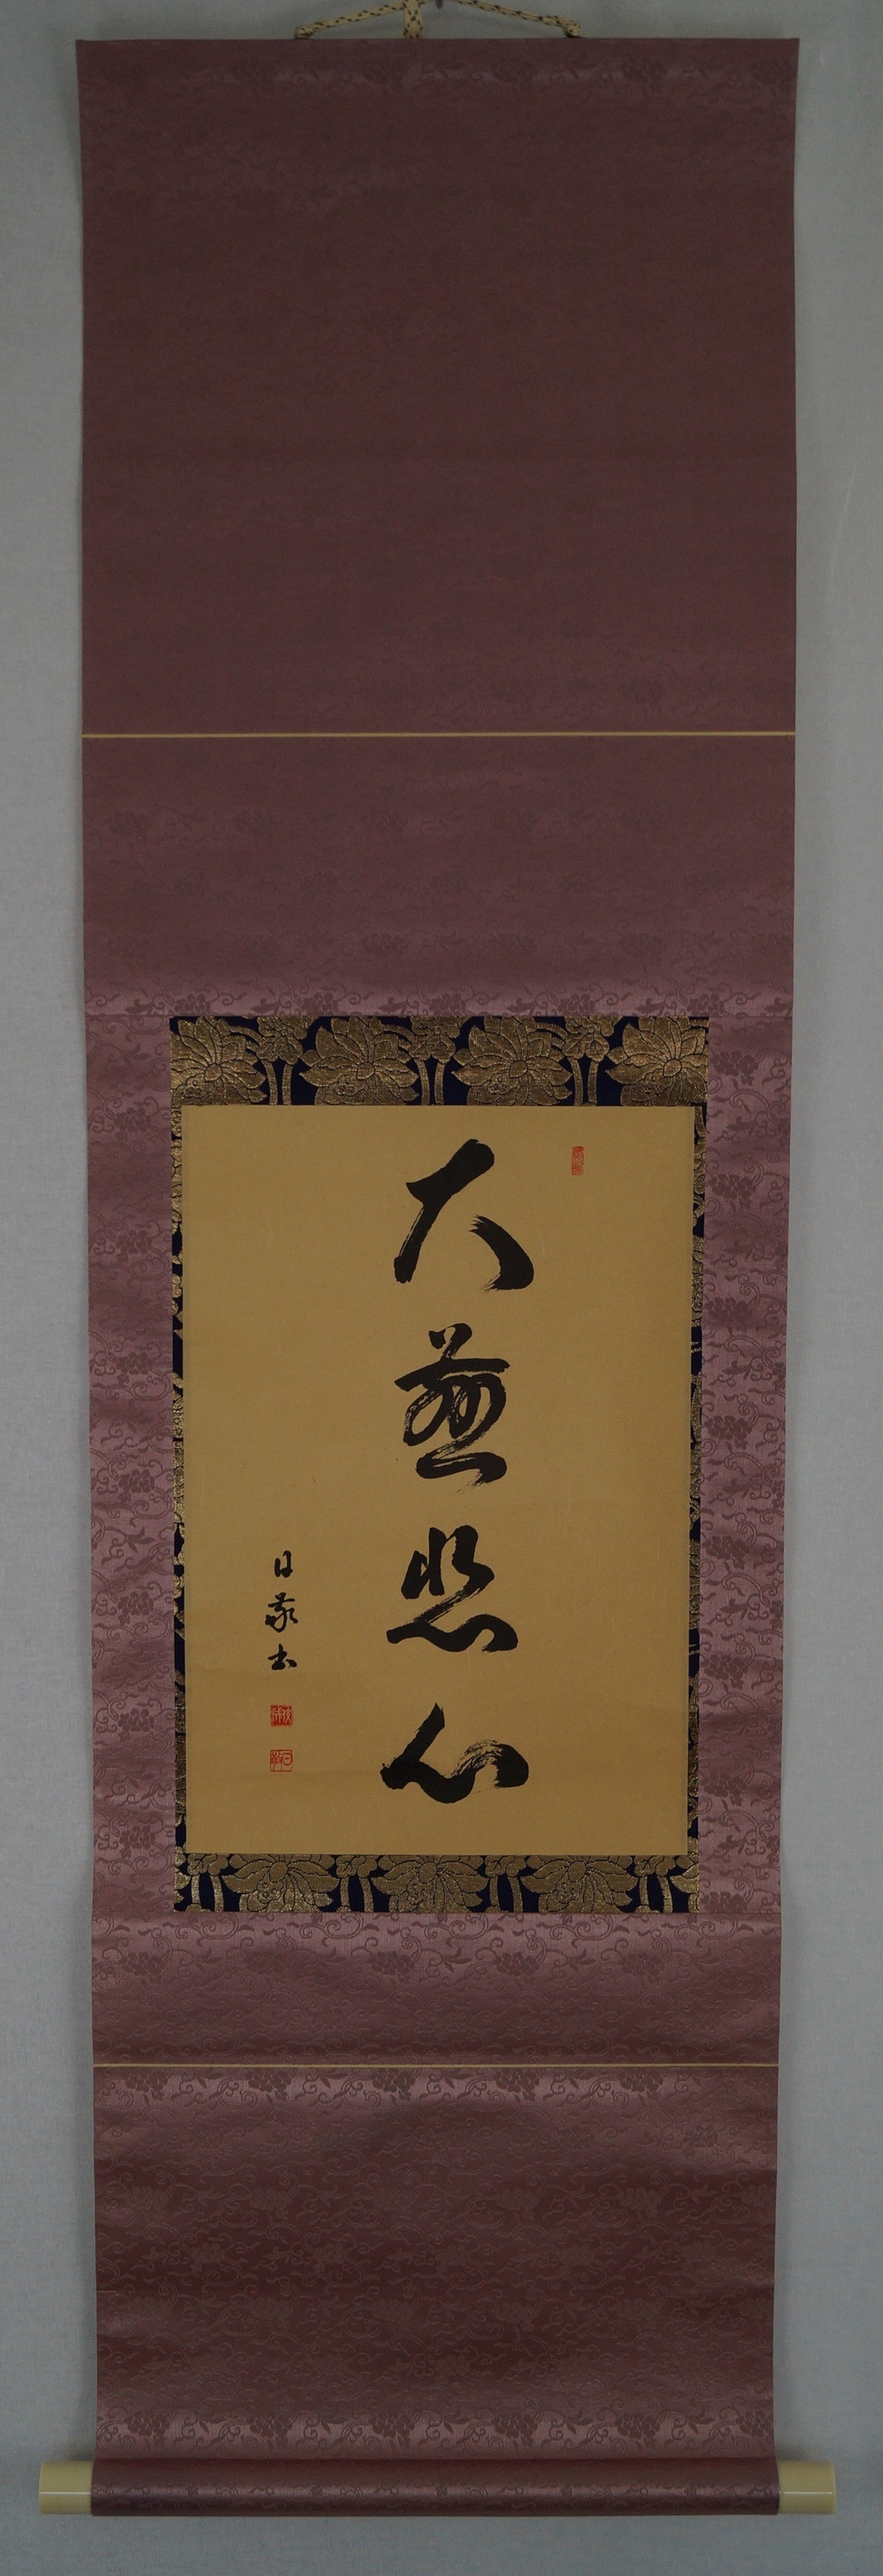 大慈悲心
日敬書